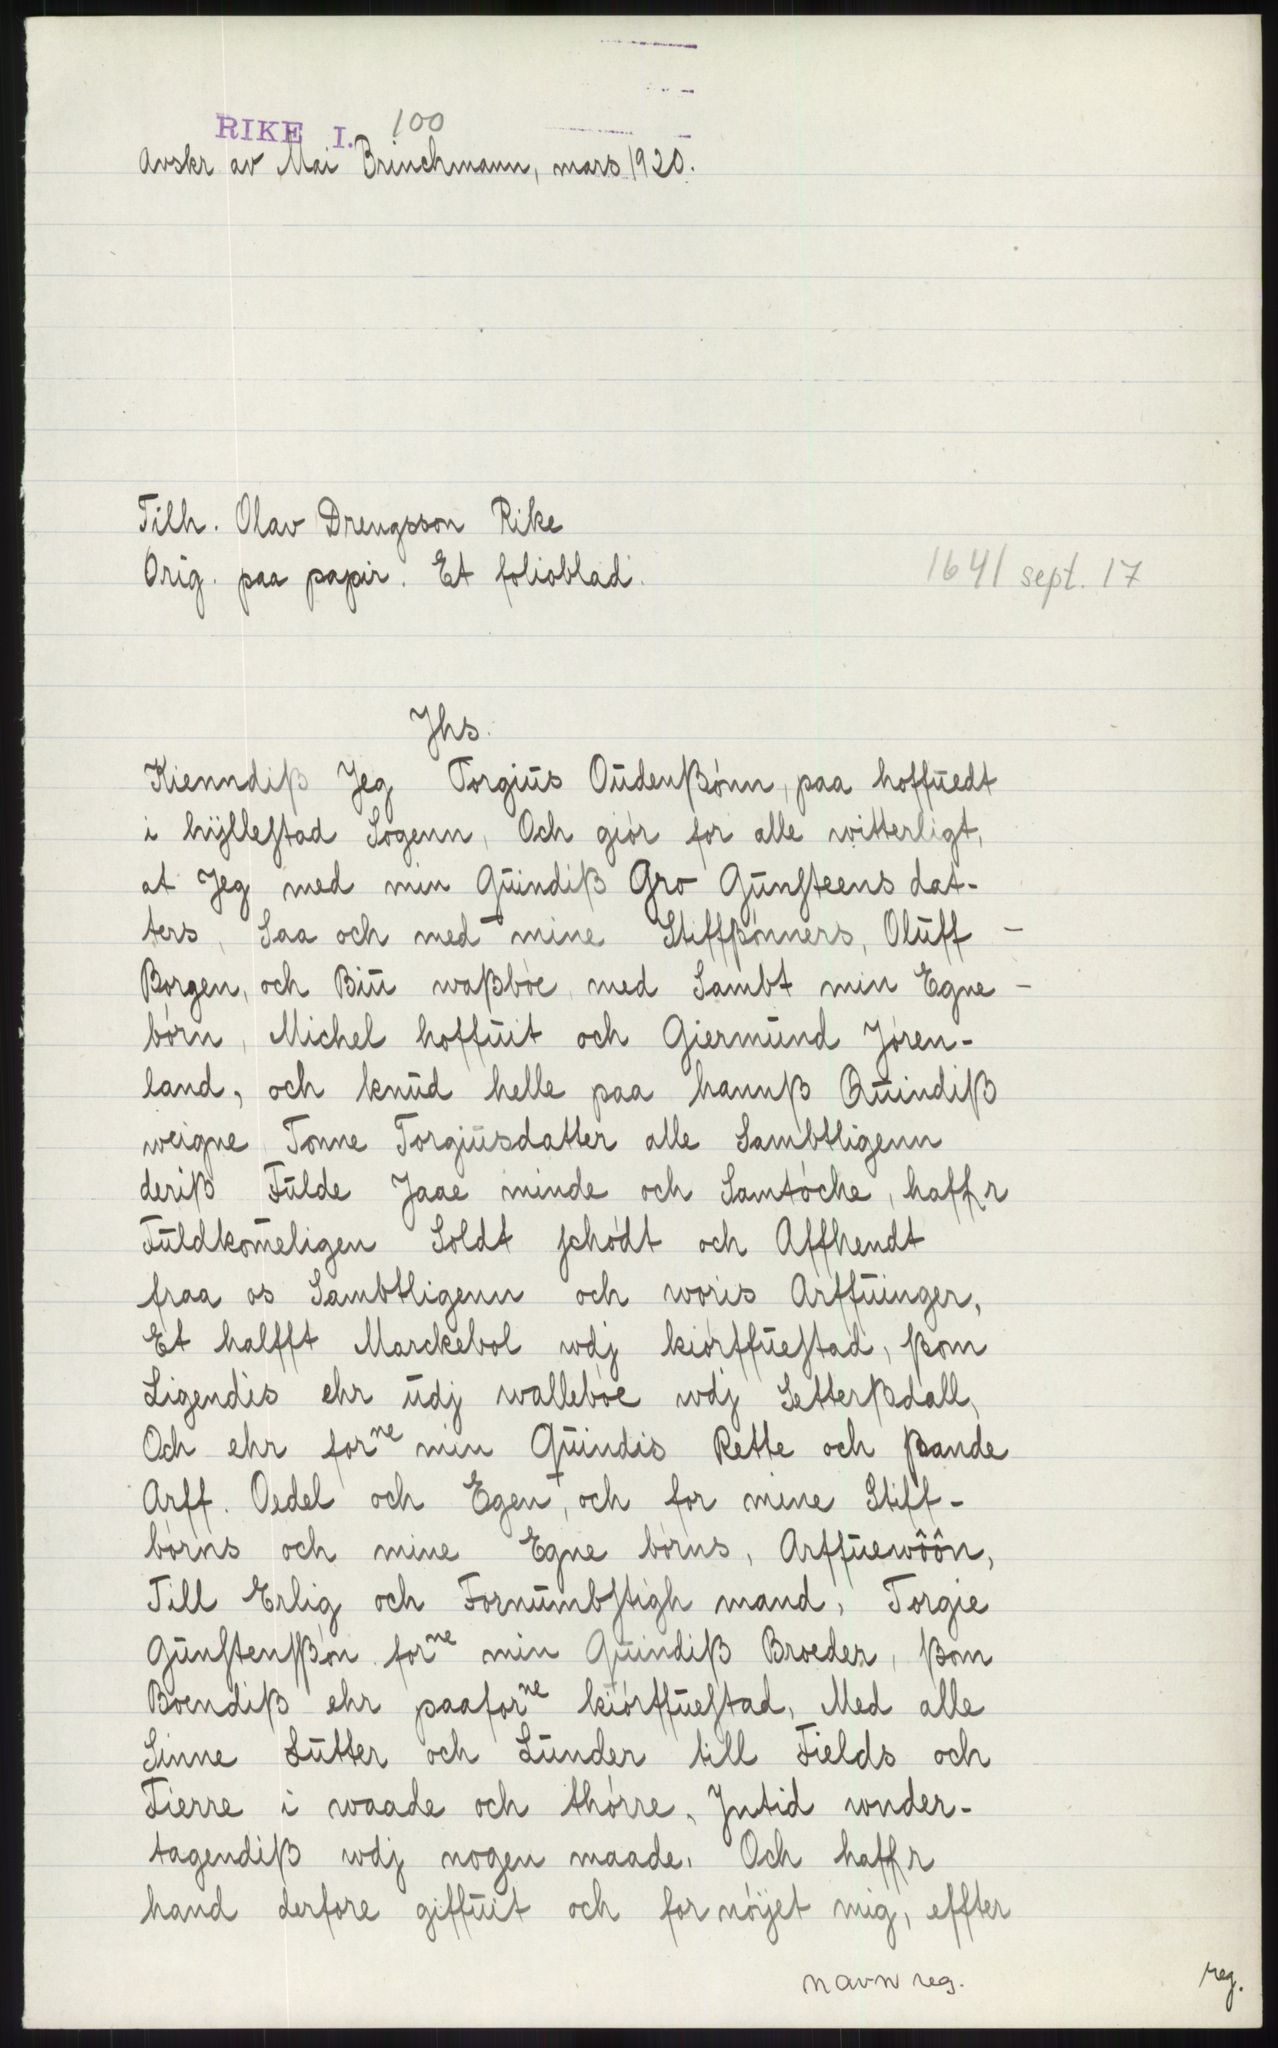 RIKE I. 100
Avskr av Mai Brinchmann, mars 1920.
Tilh. Olav Drengsson Rike
Orig. paa papir. Et folioblad.
1641 sept. 17
Jhs.
Kienndiß Jeg Torgiüs Oüdenßónn, paa hoffüedt
i hÿlleſtad Sogenn, Och giór for alle witterligt,
at Jeg med min Qüindiß Gro Günſteens dat-
ters, Saa och med mine Stiffßónners, Olüff -
Borgen, och Biü waßbóe, med Sambt min Egne -
bórn, Michel hoffüit och Giermünd Jóren-
land, och knüd helle paa hannß Qüindiß
weigne Tonne Torgiüsdatter alle Sambtligenn
deriß Fülde Jaae minde och Samtóche, haffr
Füldkom̄eligen Soldt ſchódt och Affhendt
fraa os Sambtligenn och woris Arffüinger,
Et halfft Marckebol wdj kiórffüeſtad, ßom
Ligendis ehr üdj wallebóe wdj Setterßdall,
Och ehr forⁿᵉ min Qüindis Rette och ßande
Arff. Oedel och Egen, och for mine Stiff-
bórns och mine Egne bórns, Arffüewôôn,
Till Erlig och Fornümbſtigh mand, Torgie
Günſtenſßón forⁿᵉ min Qüindiß Broeder, ßom
Boendiß ehr paaforⁿᵉ kiórffüeſtad, Med alle
Sinne Lutter och Lünder till Fields och
Fierre i waade och thórre, Jntid wnder-
tagendiß wdj nogen maade. Och haffr
hand derfore giffüit och fornóÿet mig, effter
navn reg.
reg.